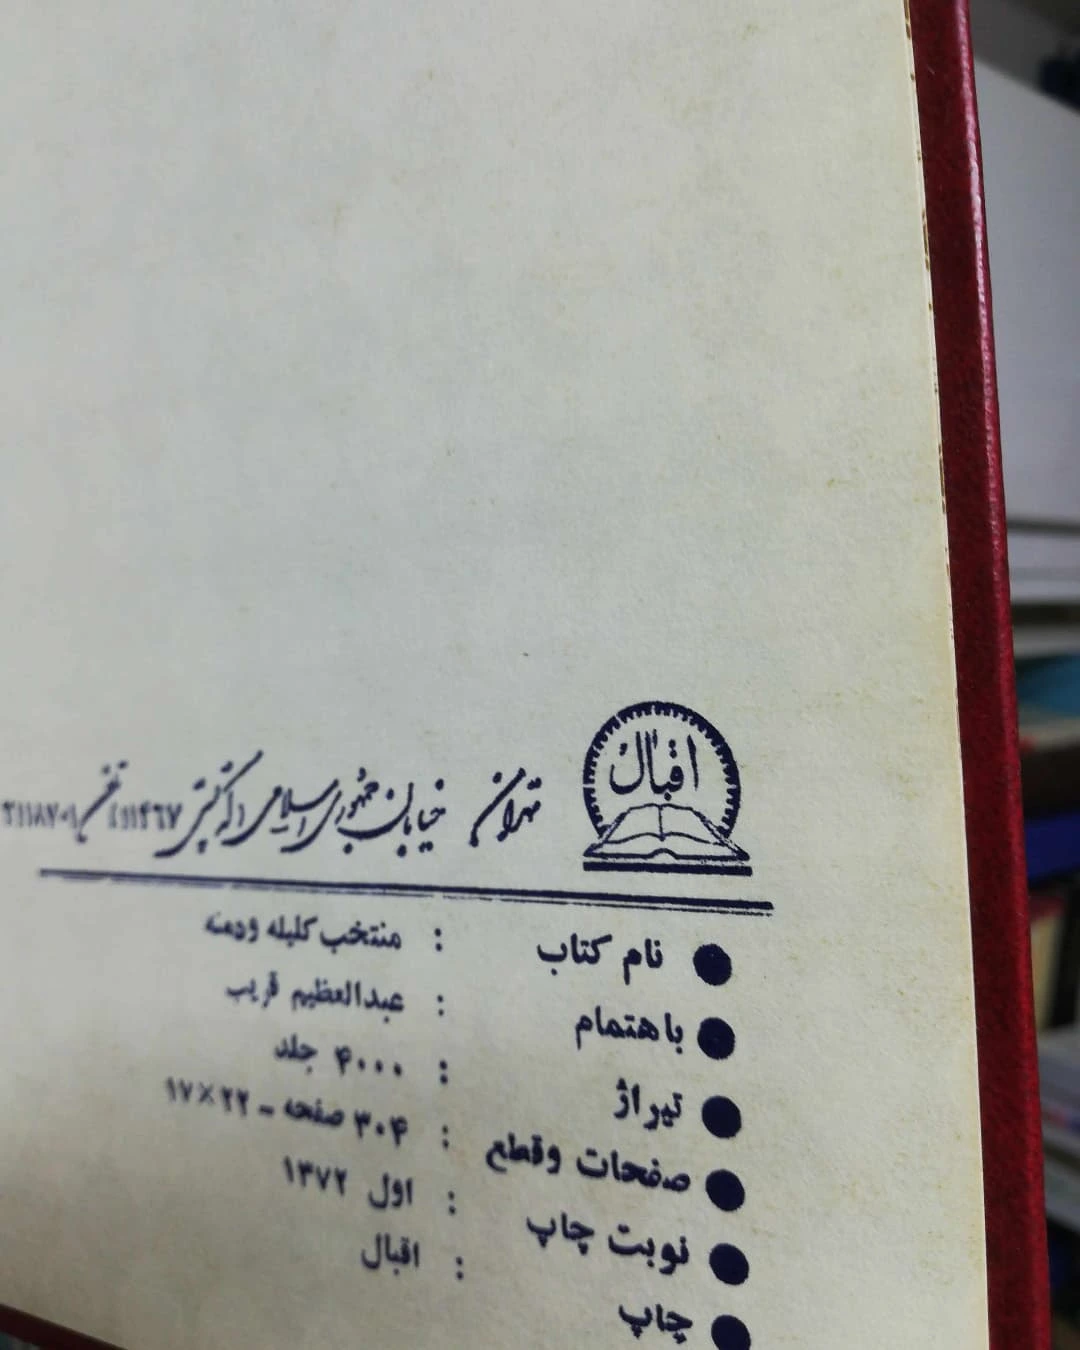 اقبال
تهران خیابان جمهوری اسلامی
نام کتاب : منتخب کلیله و دمنه
باهتمام : عبدالعظیم قریب
تیراژ : ۴۰۰۰ جلد
صفحات و قطع : ۳۰۴ صفحه ـ ۲۲×۱۷
نوبت چاپ : اول ۱۳۷۲
چاپ : اقبال